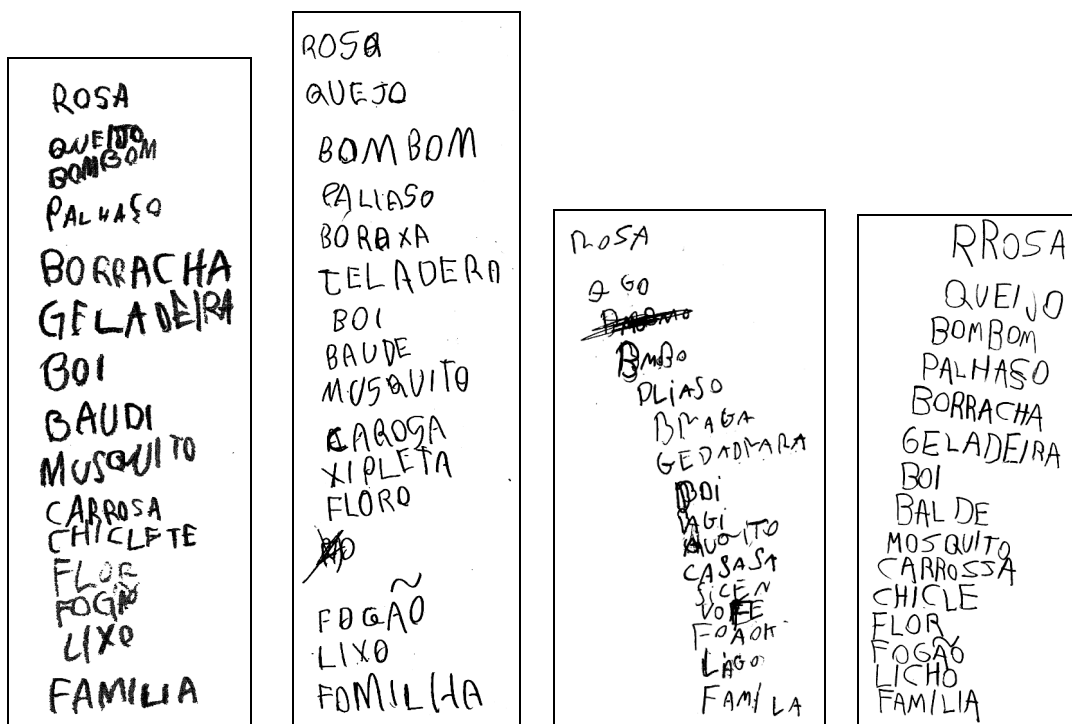 ROSA
QUEIJO
BOMBOM
PALHAÇO
BORRACHA
GELADEIRA
BOI
BAUDI
MUSQUITO
CARROSA
CHICLETE
FLOR
FOGÃO
LIXO
FAMILIA
ROSA
QUEJO
BOMBOM
PALIASO
BÓRAXA
TELADERA
BOI
BAUDE
MUSQUITO
CAROSA
XIPLETA
FLORO
FOGÃO
LIXO
FOMILHA
ROSA
BMBO
PLIASO
BMAGA
GEDADMARA
BOI
VAGI
AUQITO
CASASA
SICEN
VOFE
FOAOK
LAGO
FAMILA
RROSA
QUEIJO
BOMBOM
PALHASO
BORRACHA
GELADEIRA
BOI
BALDE
MOSQUITO
CARROSSA
CHICLE
FLOR
FOGÃO
LICHO
FAMÍLIA